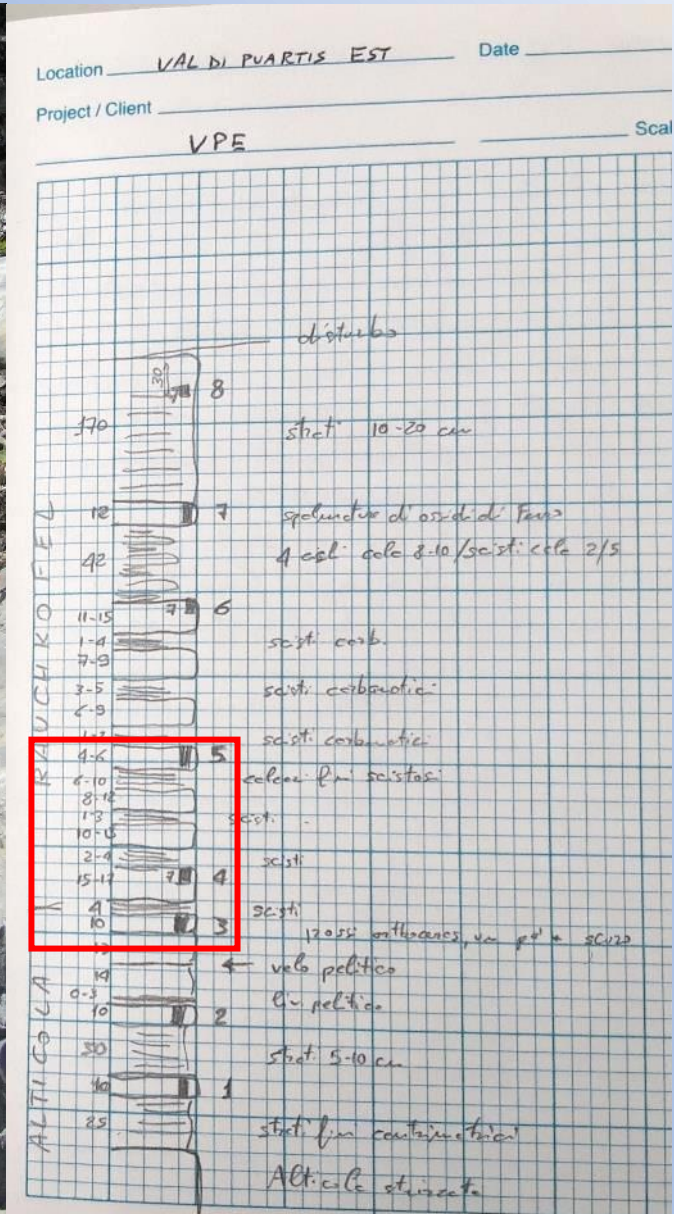 Location VAL DI PUARTIS EST Date
Project / Client
VPE Scal
disturbo
30
7 8
170 strati 10-20 cm
12 7 spalmature d'ossidi di Ferro
42 4 calc 8-10/scisti 2/5
11-15 7 6
1-4 scisti carb.
7-9
3-5 scisti carbonatici
6-9
scisti carbonatici
4-6 5
6-10 calcari fini scistosi
8-12
1-3 scisti
10-15
2-4 scisti
15-17 7 4
4 scisti
10 3 rossi orthoceras, un po' + scuro
← velo pelitico
14
0-3 liv pelitico
10 2
30 strati 5-10 cm
10 1
25 strati fini centimetrici
Alticola stirizzata
RAUCHKOFEL
ALTICOLA